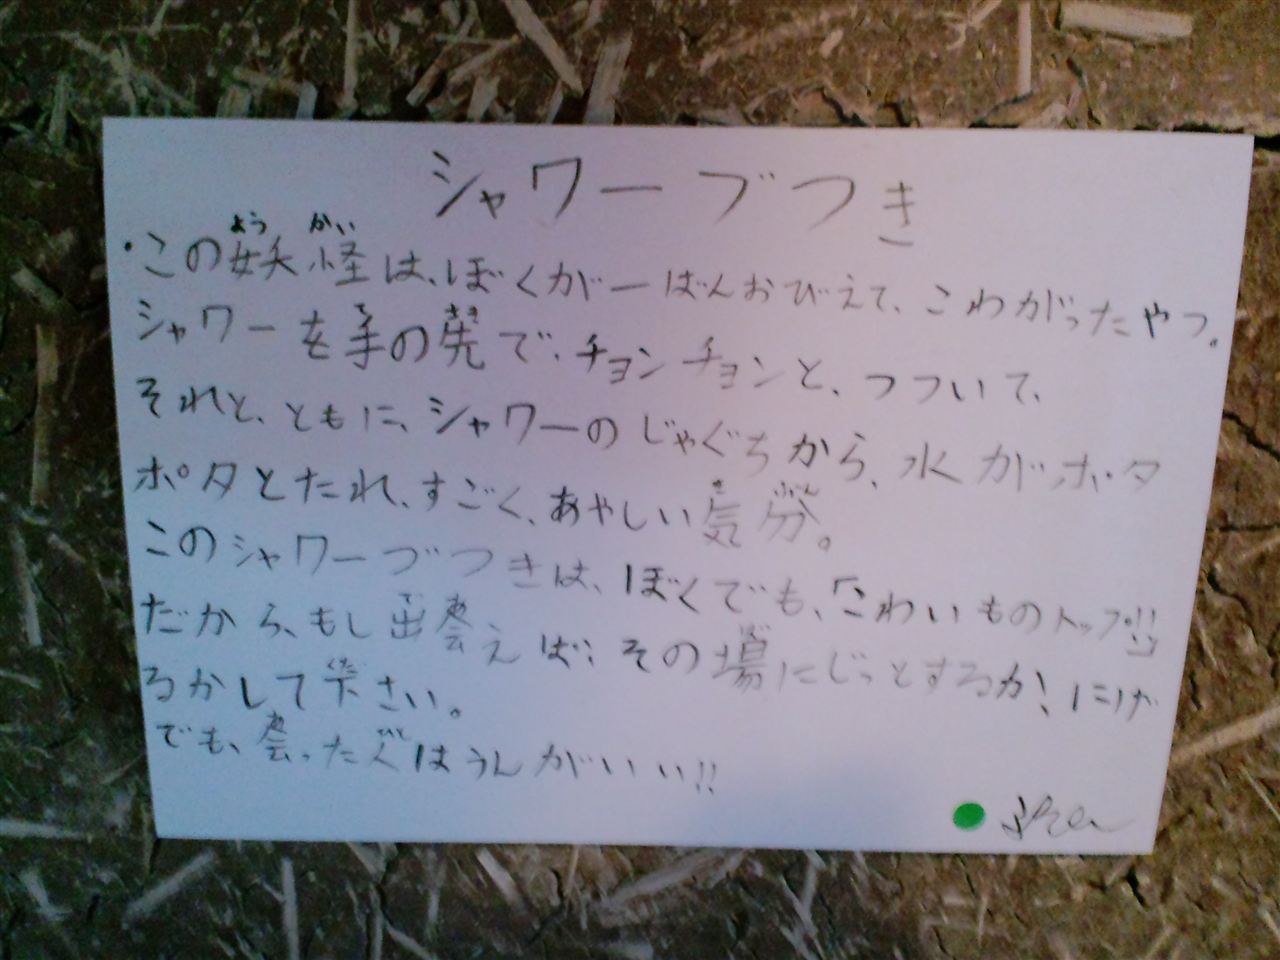 シャワーづつき
・この妖怪は、ぼくが一ばんおびえて、こわがったやつ。
シャワーを手の先で、チョンチョンと、つついて、
それと、ともに、シャワーのじゃぐちから、水がポタ
ポタとたれ、すごく、あやしい気分。
このシャワーづつきは、ぼくでも、「こわいものトップ!!」
だから、もし出会えば、その場にじっとするか!にげ
るかして下さい。
でも、会った人はうんがいい!!